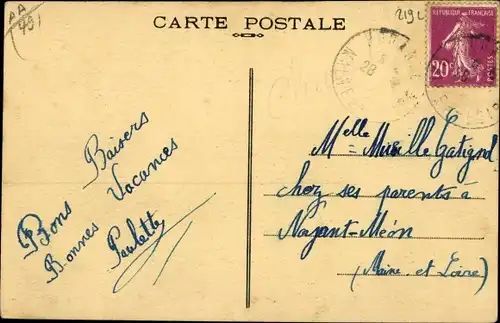 AA
491
CARTE POSTALE
219
RÉPUBLIQUE FRANÇAISE
20c
POSTES
28
Bons Baisers
Bonnes Vacances
Paulette
Melle Mireille Gatignol
chez ses parents à
Noyant-Méon
(Maine et Loire)